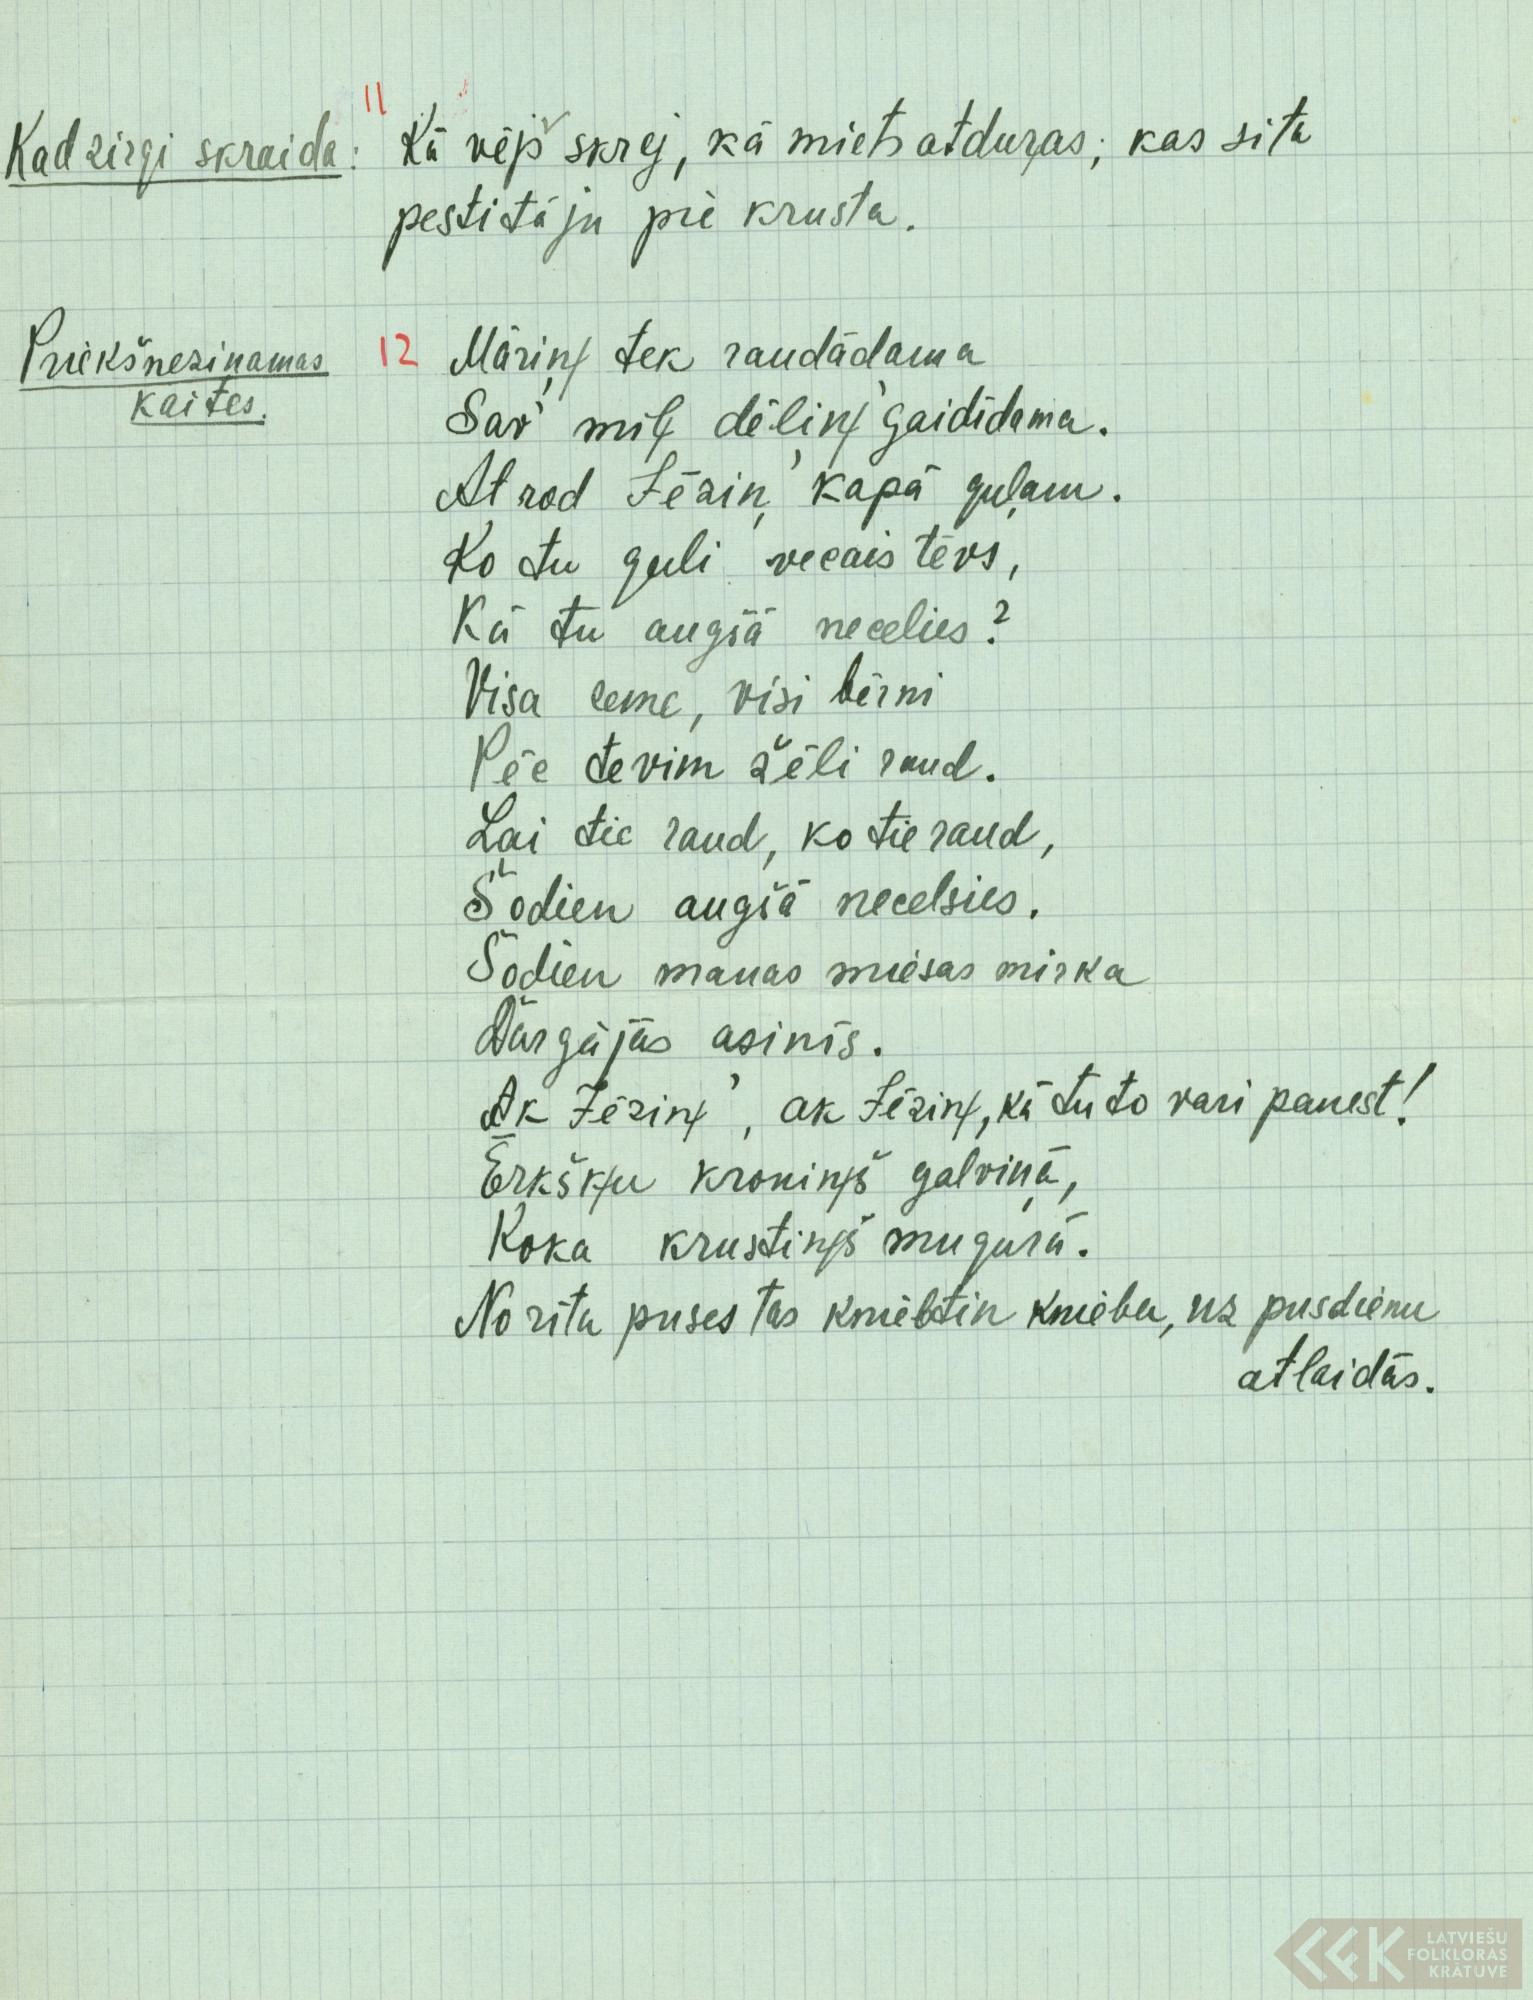 11
Kad zirgi skraida: Kā vējš skrej, kā miets atduŗas; kas sita
pestitāju pie krusta.
Priekš nezinamas 12 Māriņ tek raudādama
kaites. Sav' miļ dēliņ' gaidīdama.
Atrod Jēziņ' kapā guļam.
Ko tu guli vecais tēvs,
Kā tu augšā necelies?
Visa zeme, visi bērni
Pēc tevim žēli raud.
Lai tie raud, ko tie raud,
Šodien augšā necelsies.
Šodien manas miesas mirka
Dārgajās asinīs.
Ak Jēziņ', ak Jēziņ, kā tu to vari panest!
Ērkšķu kroniņš galviņā,
Koka krustiņš mugurā.
No rīta puses tas kniebtin knieba, uz pusdienu
atlaidās.
LATVIEŠU
FOLKLORAS
KRĀTUVE